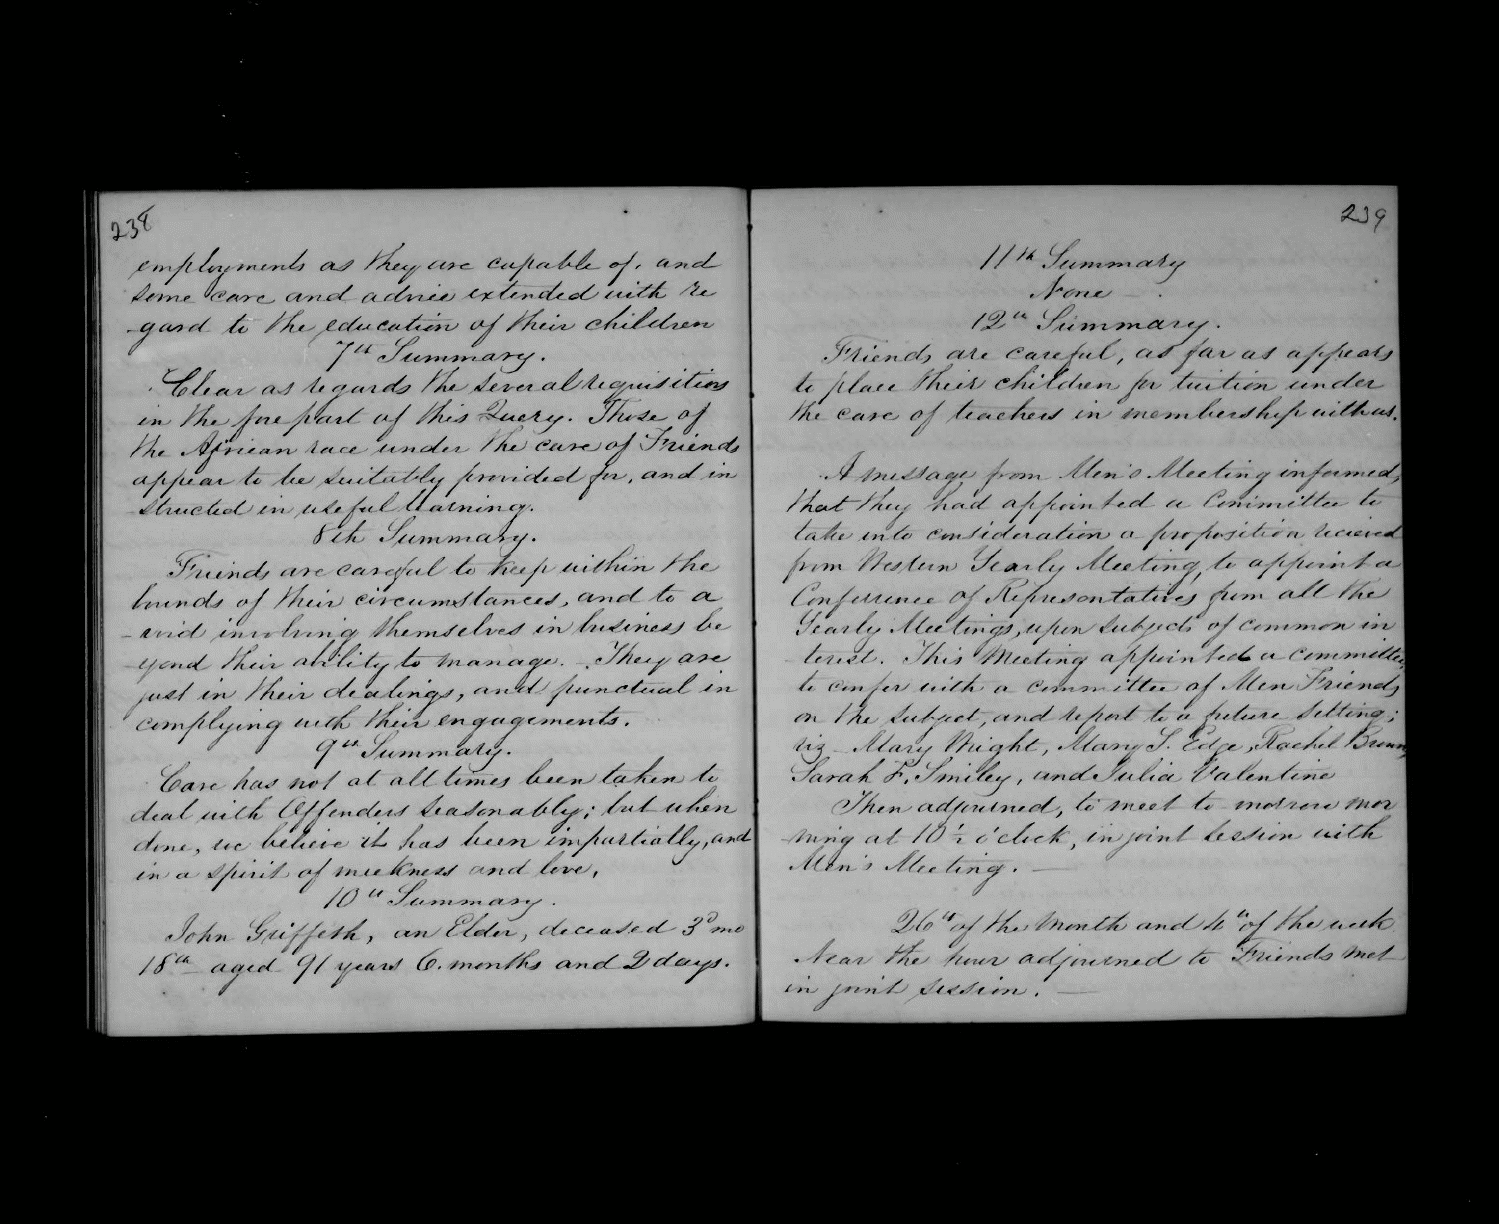 238
employments as they are capable of, and
some care and advice extended with re
-gard to the education of their children
7th Summary.
Clear as regards the several requisitions
in the fore part of this Query. Those of
the African race under the care of Friends
appear to be suitably provided for, and in
-structed in useful learning.
8th Summary.
Friends are careful to keep within the
bounds of their circumstances, and to a
-void involving themselves in business be
-yond their ability to manage. - They are
just in their dealings, and punctual in
complying with their engagements.
9th Summary.
Care has not at all times been taken to
deal with Offenders seasonably; but when
done, we believe it has been impartially, and
in a spirit of meekness and love.
10th Summary.
John Griffeth, an Elder, deceased 3d mo
18th aged 91 years 6. months and 2 days.
239
11th Summary
None - .
12th Summary.
Friends are careful, as far as appears
to place their children for tuition under
the care of teachers in membership with us.
A message from Men's Meeting informed,
that they had appointed a Committee to
take into consideration a proposition recieved
from Western Yearly Meeting, to appoint a
Conference of Representatives from all the
Yearly Meetings, upon subjects of common in
-terest. This Meeting appointed a committee,
to confer with a committee of Men Friends
on the subject, and report to a future sitting;
viz - Mary Wright, Mary S. Edge, Rachel Brown,
Sarah F. Smiley, and Julia Valentine
Then adjourned, to meet to-morrow mor
-ning at 10 1/2 o'clock, in joint session with
Men's Meeting. —
26th of the Month and 4th of the week
Near the hour adjourned to Friends met
in joint session. —